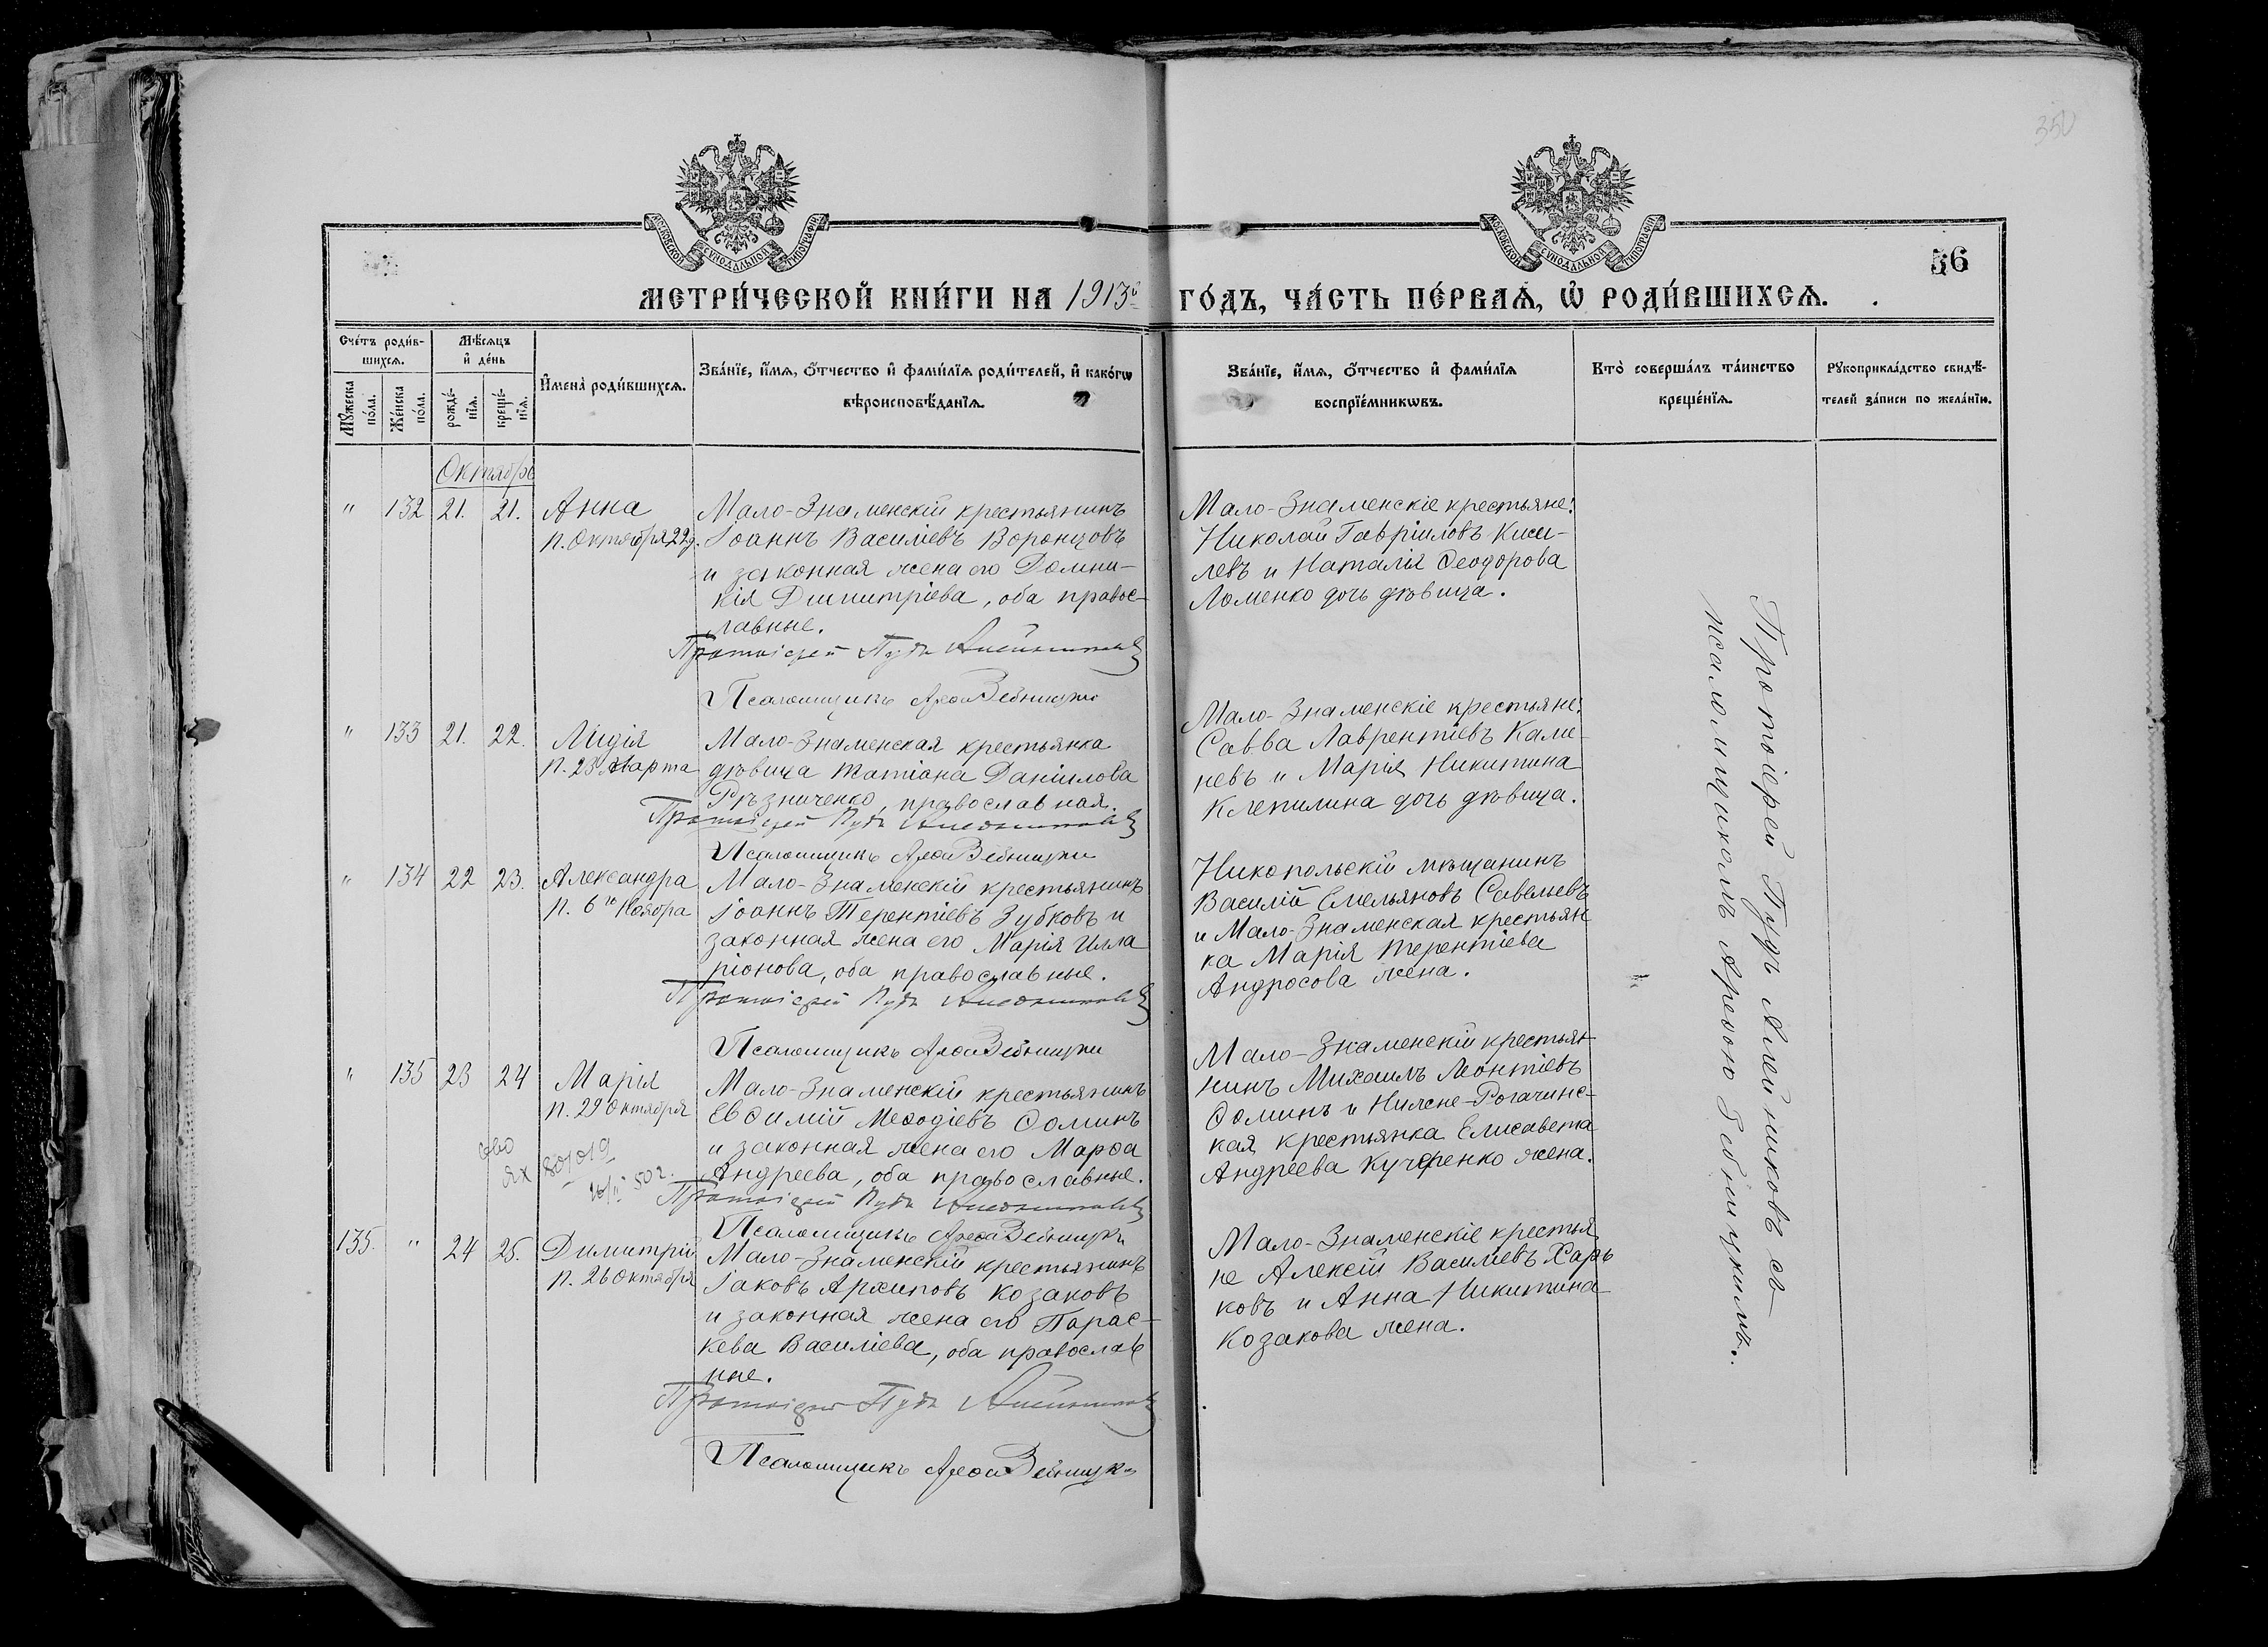 350
МОСКОВСКОЙ СѴНОДАЛЬНОЙ ТИПОГРАФІИ
МОСКОВСКОЙ СѴНОДАЛЬНОЙ ТИПОГРАФІИ
56
МЕТРИ́ЧЕСКОЙ КНИ́ГИ НА 1913й ГО́ДЪ, ЧА́СТЬ ПЕ́РВАѦ, Ѡ҆ РОДИ́ВШИХСѦ.
Сче́тъ роди́в-
шихсѧ.
Мꙋ́жеска
по́ла.
Же́нска
по́ла.
Мѣ́сѧцъ
и҆ де́нь
рожде́-
нїѧ.
креще́-
нїѧ.
И҆мена̀ роди́вшихсѧ.
Зва́нїе, и҆́мѧ, ѻ҆́тчество и҆ фами́лїѧ роди́телей, и҆ како́гѡ
вѣроисповѣ́данїѧ.
Зва́нїе, и҆́мѧ, ѻ҆́тчество и҆ фами́лїѧ
воспрїе́мникѡвъ.
Кто̀ соверша́лъ та́инство
креще́нїѧ.
Рꙋкоприкла́дство свидѣ́-
телей за́писи по жела́нїю.
Октябрь
" 132 21. 21. Анна
п. Октября 22 д.
Мало-Знаменскій крестьянинъ
Іоаннъ Василіевъ Воронцовъ
и законная жена его Домни-
кія Димитріева, оба правос-
лавные.
Протоіерей Пудъ Алейниковъ
Псаломщикъ Арефа Зебницкій
Мало-Знаменскіе крестьяне:
Николай Гавріиловъ Кисе-
левъ и Наталія Ѳеодорова
Ломенко дочь дѣвица.
" 133 21. 22. Лидія
п. 23 Марта
Мало-Знаменская крестьянка
дѣвица Татіана Даніилова
Рѣзниченко, православная.
Протоіерей Пудъ Алейниковъ
Псаломщикъ Арефа Зебницкій
Мало-Знаменскіе крестьяне:
Савва Лаврентіевъ Каме-
невъ и Марія Никитина
Клепилина дочь дѣвица.
" 134 22 23. Александра
п. 6го Ноября
Мало-Знаменскій крестьянинъ
Іоаннъ Терентіевъ Зубковъ и
законная жена его Марія Илла
ріонова, оба православные.
Протоіерей Пудъ Алейниковъ
Псаломщикъ Арефа Зебницкій
Никопольскій мѣщанинъ
Василій Емельяновъ Савельевъ
и Мало-Знаменская крестьян
ка Марія Терентіева
Андросова жена.
" 135 23 24 Марія
п. 29 Октября
Мало-Знаменскій крестьянинъ
Евѳимій Меѳодіевъ Ѳоминъ
и законная жена его Марѳа
Андреева, оба православные.
Протоіерей Пудъ Алейниковъ
Псаломщикъ Арефа Зебницкій
Мало-Знаменскій крестьян-
нинъ Михаилъ Леонтіевъ
Ѳоминъ и Нижне-Рогачинс-
кая крестьянка Елисавета
Андреева Кучеренко жена.
135. " 24 25. Димитрій
п. 26 Октября
Мало-Знаменскій крестьянинъ
Іаковъ Архиповъ Козаковъ
и законная жена его Парас-
кева Василіева, оба православ
ные.
Протоіерей Пудъ Алейниковъ
Псаломщикъ Арефа Зебницкій
Мало-Знаменскіе крестья
не Алексій Василіевъ Харь
ковъ и Анна Никитина
Козакова жена.
Протоіерей Пудъ Алейниковъ съ
псаломщикомъ Арефою Зебницкимъ.